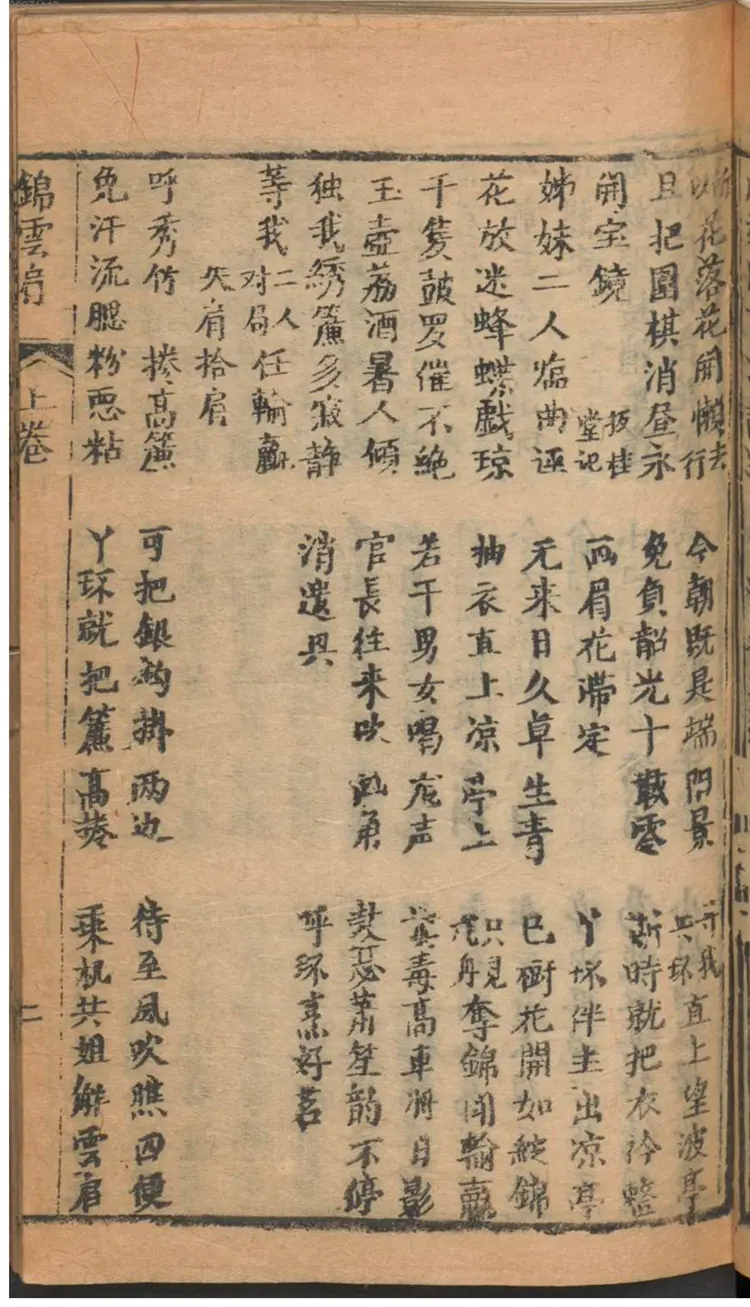 花落花開懶去行　今朝既是端門景　等我共环直上望波亭
且把圍棋消昼永　免負韶光十載零　斯时就把衣衿整
開宝鏡　两眉花滞定　丫环伴主出凉亭
扳桂堂记
姊妹二人临曲迳　无来日久草生青　巳樹花開如綻錦
花放迷蜂蝶戯琼　抽衣直上凉亭上　只見龙舟奪錦闹輸贏
千隻鼓罗催不绝　若干男女唱龙声　高車潤日影
玉壺荔酒暑人傾　官長往来吹角　鼓蕭笙韵不停
独我綉簾多寂静　消遣具　呼环烹好茗
等我二人对局任輸贏
失肩拾肩
呼秀竹　捲高簾　可把銀鈎掛两边　待至風吹瞧四便
免汗流腮粉恶粘　丫环就把簾高捲　乘机共姐解雲肩
錦雲肩　上卷　二